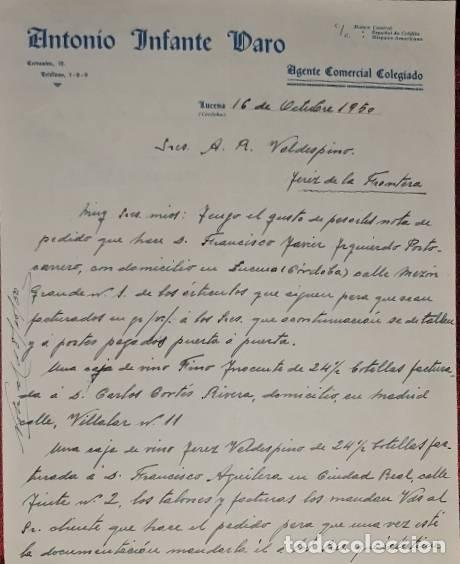 Antonio Infante Varo
C/c. Banco Central
" Español de Crédito
" Hispano Americano
Cervantes, 12.
Teléfono, 1-6-9
Agente Comercial Colegiado
Lucena 16 de Octubre 1950
(Córdoba)
Sres. A. R. Valdespino.
Jerez de la Frontera
Muy Sres. mios: Tengo el gusto de pasarles nota de
pedido que hace D. Francisco Javier Izquierdo Porto-
carrero, con domicilio en Lucena (Córdoba) calle Mezon
Grande nº 1. de los artículos que siguen para que sean
facturados en á los Sres. que acontinuación se detallan
y a portes pagados puerta á puerta.
Una caja de vino Fino Inocente de 24/2 botellas factura-
da á D. Carlos Cortés Rivera, domicilio en Madrid
calle, Villalar nº 11
Una caja de vino Jerez Valdespino de 24/2 botellas fac-
turada á D. Francisco Aguilera en Ciudad Real, calle
nº 2, los talones y facturas los mandan Vds al
Sr. cliente que hace el pedido para que una vez esté
la documentación mandarla él
todocoleccion